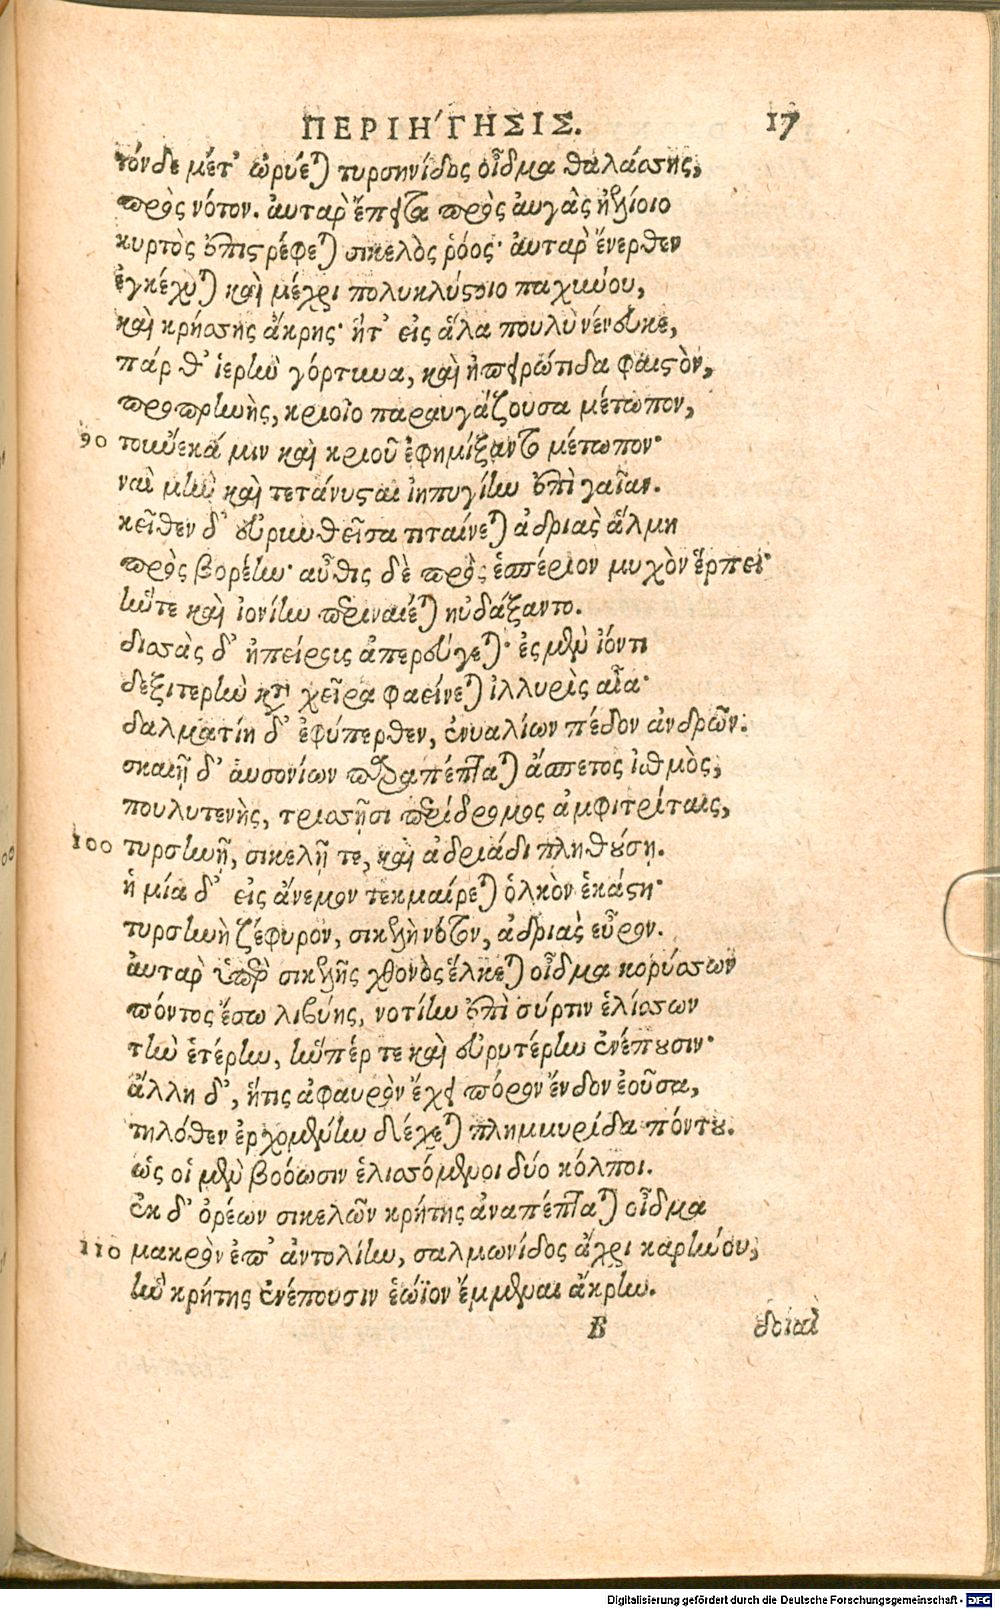 ΠΕΡΙΗΓΗΣΙΣ. 17
τόνδε μέτ' ὠρύεται τυρσηνίδος οἶδμα θαλάσσης,
πρὸς νότον. ἀυταρ ἔπειτα πρὸς ἀυγὰς ἠελίοιο
κυρτὸς ἐπιστρέφεται σικελὸς ῥόος· ἀυταρ ἔνερθεν
ἐγκέχυται καὶ μέχρι πολυκλύστοιο παχυνόυ,
καὶ κρήσσης ἄκρης· ἥτ' εἰς ἅλα πουλὺ νένευκε,
πάρ θ' ἱερὴν γόρτυνα, καὶ ἠπειρώτιδα φαιστὸν,
προπρηνὴς, κριοῖο παραυγάζουσα μέτωπον,
90 τοὔνεκά μιν καὶ κριοῦ ἐφημίξαντο μέτωπον·
ναὶ μὴν καὶ τετάνυσται ἰηπυγίην ἐπὶ γαῖαν.
κεῖθεν δ' εὐρυνθεῖσα τιταίνεται ἀδριὰς ἅλμη
πρὸς βορέην· αὖθις δὲ πρὸς ἑσπέριον μυχὸν ἕρπει·
ἥντε καὶ ἰονίην περιναιέται ηὐδάξαντο.
δισσὰς δ' ἠπείροις ἀπερεύγεται· ἐς μὲν ἰόντι
δεξιτερὴν κατὰ χεῖρα φαείνεται ἰλλυρὶς αἶα·
δαλματίη δ' ἐφύπερθεν, ἐνυαλίων πέδον ἀνδρῶν.
σκαιῇ δ' ἀυσονίων παραπέπταται ἄσπετος ἰσθμὸς,
πουλυτενὴς, τρισσῇσι περίδρομος ἀμφιτρίταις,
100 τυρσηνῇ, σικελῇ τε, καὶ ἀδριάδι πληθούσῃ.
ἡ μία δ' εἰς ἄνεμον τεκμαίρεται ὁλκὸν ἑκάστη·
τυρσηνὴ ζέφυρον, σικελὴ νότον, ἀδριὰς εὖρον.
ἀυταρ ὑπὲρ σικελῆς χθονὸς ἕλκεται οἶδμα κορύσσων
πόντος ἔσω λιβύης, νοτίην ἐπὶ σύρτιν ἑλίσσων
τὴν ἑτέρην, ἥνπέρ τε καὶ εὐρυτέρην ἐνέπουσιν·
ἄλλη δ', ἥτις ἀφαυρὸν ἔχει πόρον ἔνδον ἐοῦσα,
τηλόθεν ἐρχομένην δέχεται πλημμυρίδα πόντου.
ὡς οἱ μὲν βοόωσιν ἑλισσόμενοι δύο κόλποι.
ἐκ δ' ὀρέων σικελῶν κρήτης ἀναπέπταται οἶδμα
110 μακρὸν ἐπ' ἀντολίην, σαλμωνίδος ἄχρι καρήνου,
ἣν κρήτης ἐνέπουσιν ἑώϊον ἔμμεναι ἄκρην.
B δοιαὶ
Digitalisierung gefördert durch die Deutsche Forschungsgemeinschaft - DFG